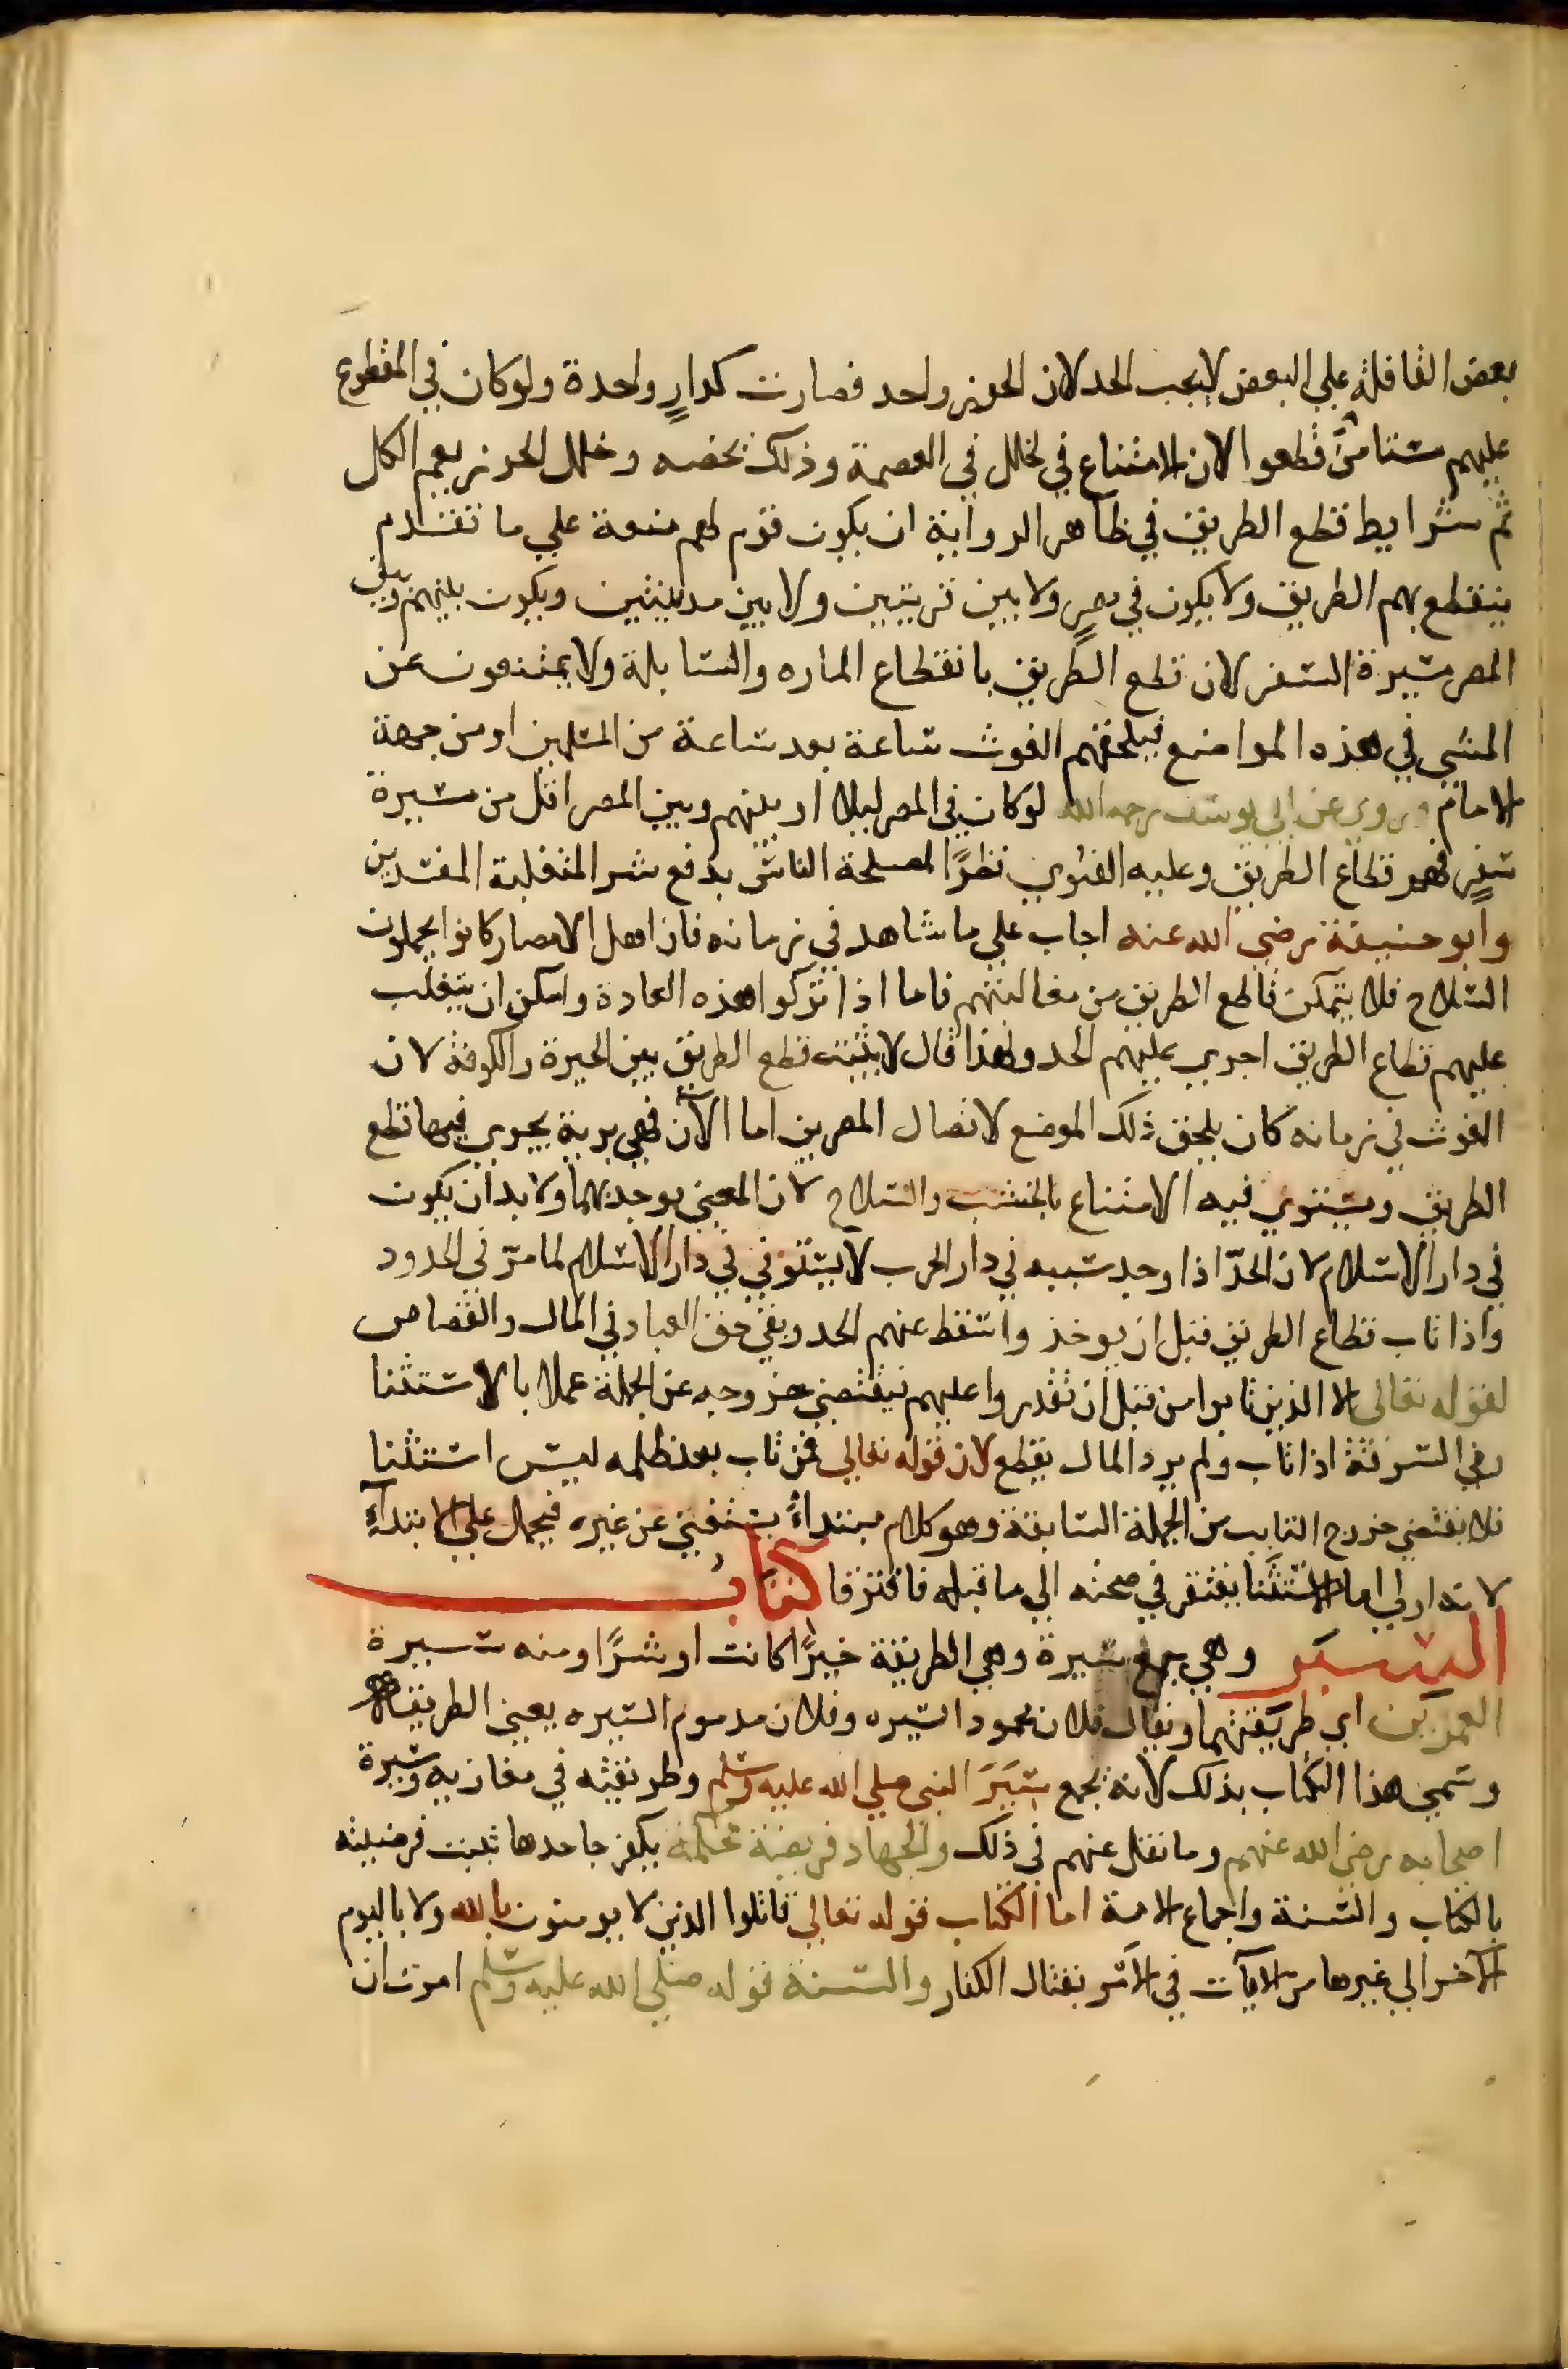 بعض القافلة علي البعض لا يجب الحد لان الحرز واحد فصارت كدارٍ واحدة ولو كان في المقطوع
عليهم مستامن قطعوا لان الامتناع في لخلل في العصمة وذلك يخصه وخلل الحرز يعم الكل
ثم شرايط قطع الطريق في ظاهر الرواية ان يكون قوم لهم منعة علي ما تقدم
ينقطع بهم الطريق ولا يكون في مصرٍ ولا بين قريتين ولا بين مدينتين ويكون بينهم وبين
المصر مسيرة السفر لان قطع الطريق بانقطاع الماره والسابلة ولا يمتنعون عن
المشي في هذه المواضع فيلحقهم الغوث ساعة بعد ساعة من المسلمين او من جهة
الامام وروي عن ابي يوسف رحمه الله لو كان في المصر ليلا او بينهم وبين المصر اقل من مسيرة
سفرٍ فهو قطاع الطريق وعليه الفتوي نظرًا لمصلحة الناس بدفع شر المتغلبة المفسدين
وابو حنيفة رضي الله عنه اجاب علي ما شاهد في زمانه فان اهل الامصار كانوا يحملون
السلاح فلا يتمكن قاطع الطريق من مغالبتهم فاما اذا تركوا هذه العادة وامكن ان يتغلب
عليهم قطاع الطريق اجري عليهم الحد ولهذا قال لا يثبت قطع الطريق بين الحيرة والكوفة لان
الغوث في زمانه كان يلحق ذلك الموضع لاتصال المصرين اما الآن فهي برية يجري فيها قطع
الطريق ويستوي فيه الامتناع بالخشب والسلاح لان المعني يوجد بهما ولا بد ان يكون
في دار الاسلام لان الحدّ اذا وجد سببه في دار الحرب لا يستوفي في دار الاسلام لما مر في الحدود
واذا تاب قطاع الطريق قبل ان يوخذ واسقط عنهم الحد وبقي حق العباد في المال والقصاص
لقوله تعالي الا الذين تابوا من قبل ان تقدروا عليهم فيقتضي خروجه عن الجملة عملا بالاستثنا
وفي السرقة اذا تاب ولم يرد المال يقطع لان قوله تعالي فمن تاب بعد ظلمه ليس استثنا
فلا يقتضي خروج التايب من الجملة السابقة وهو كلام مبتداءً يستغني عن غيره فيحمل علي الابتداءِ
لانه اولي اما الاستثنا يفتقر في صحته الي ما قبله فافترقا كتاب
السير وهي جمع سيرة وهي الطريقة خيرًا كانت او شرًا ومنه سيرة
العمرين اي طريقتهما ويقال فلان محمود السيره وفلان مدموم السيره يعني الطريقة
وسمي هذا الكتاب بذلك لانه يجمع سِيَرَ النبي صلي الله عليه وسلم وطريقته في مغازيه وسيرة
اصحابه رضي الله عنهم وما نقل عنهم في ذلك والجهاد فريضة محكمة يكفر جاحدها ثبت فرضيته
بالكتاب والسنة واجماع الامة اما الكتاب فقوله تعالي قاتلوا الذين لا يومنون بالله ولا باليوم
الآخر الي غيرها من الايآت في الامر بقتال الكفار والسنة قوله صلي الله عليه وسلم امرت ان